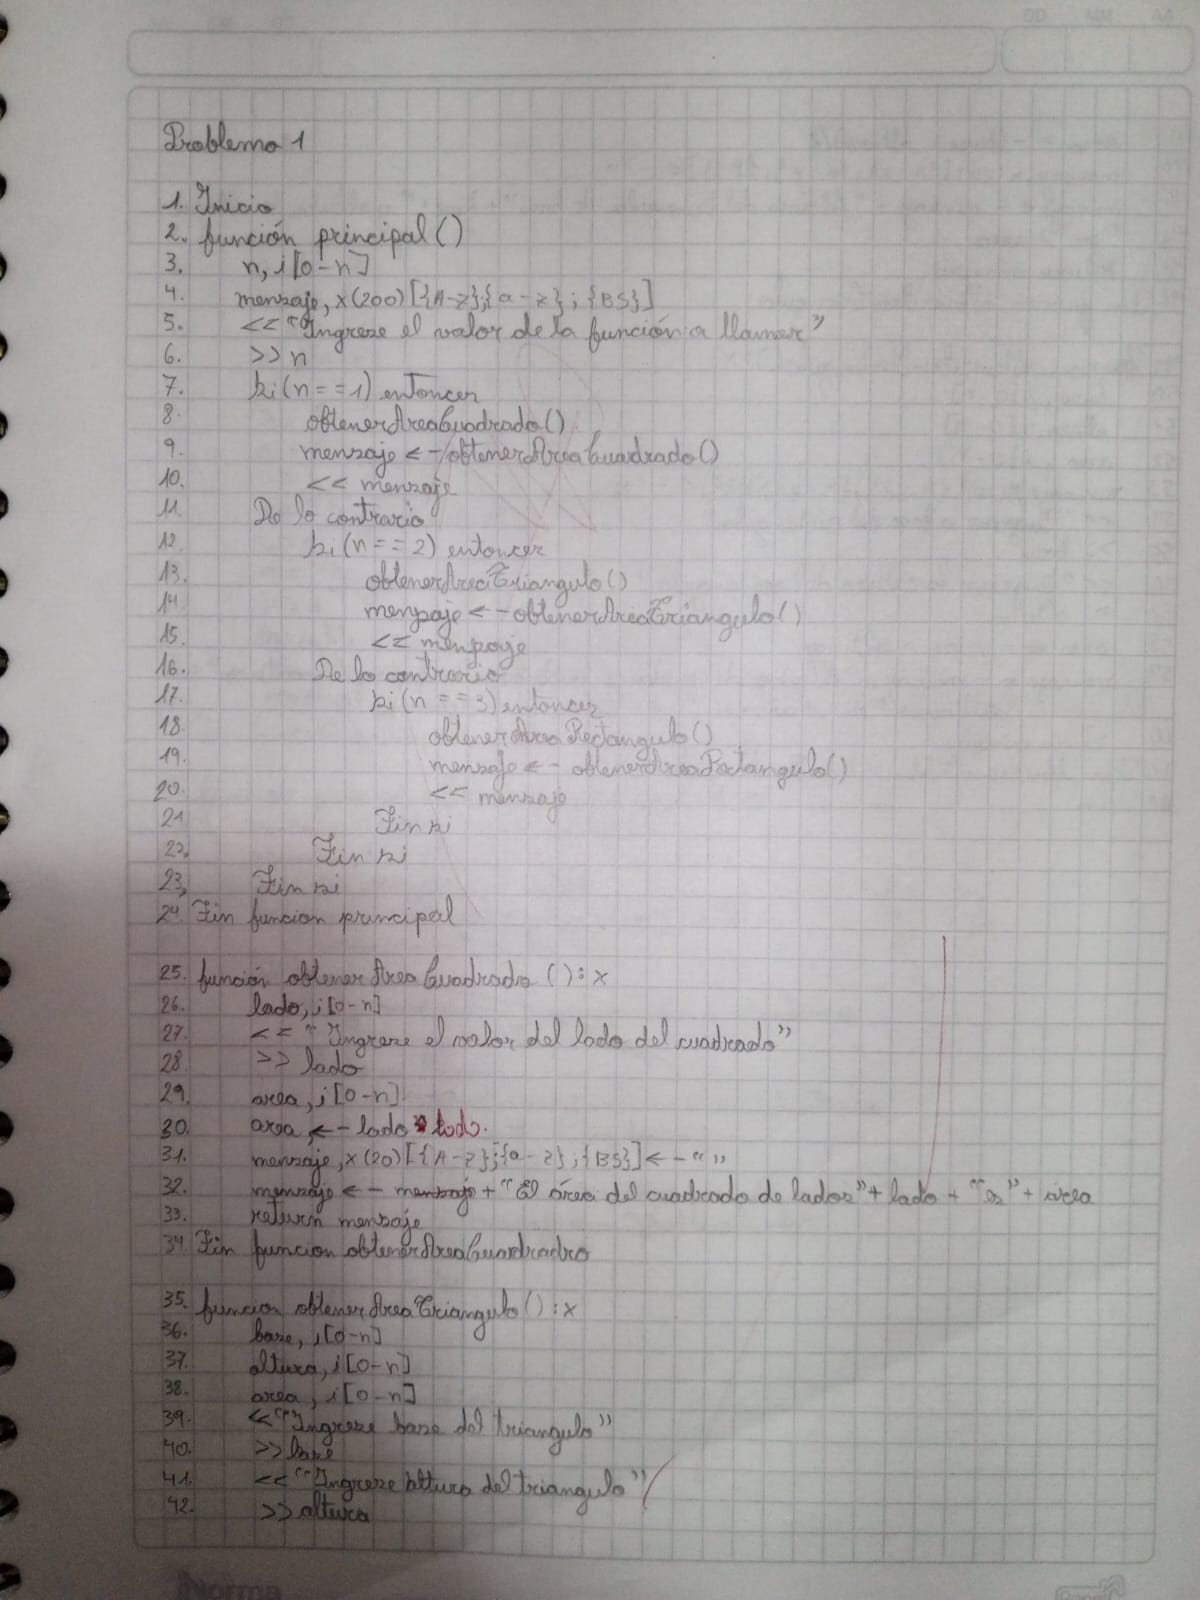 DD MM AA
Problema 1
1. Inicio
2. función principal()
3. n, i[0-n]
4. mensaje, x(200)[{A-Z};{a-z};{BS}]
5. << "Ingrese el valor de la función a llamar"
6. >> n
7. si(n==1) entonces
8. obtenerAreaCuadrado()
9. mensaje <- obtenerAreaCuadrado()
10. << mensaje
11. De lo contrario
12. si(n==2) entonces
13. obtenerAreaTriangulo()
14 mensaje <- obtenerAreaTriangulo()
15. << mensaje
16. De lo contrario
17. si(n==3) entonces
18. obtenerAreaRectangulo()
19. mensaje <- obtenerAreaRectangulo()
20. << mensaje
21 Fin si
22. Fin si
23. Fin si
24. Fin funcion principal
25. función obtenerAreaCuadrado():x
26. lado, i[0-n]
27. << "Ingrese el valor del lado del cuadrado"
28 >> lado
29. area, i[0-n]
30. area, <- lado * lado.
31. mensaje, x(20)[{A-Z};{a-z};{BS}] <- " "
32. mensaje <- mensaje + "El área del cuadrado de lados" + lado + "es" + área
33. return mensaje
34 Fin funcion obtenerAreaCuadradro
35. funcion obtenerAreaTriangulo():x
36. base, i[0-n]
37. altura, i[0-n]
38. area, i[0-n]
39. << "Ingrese base del triangulo"
40. >> base
41. << "Ingrese altura del triangulo"
42. >> altura
Norma